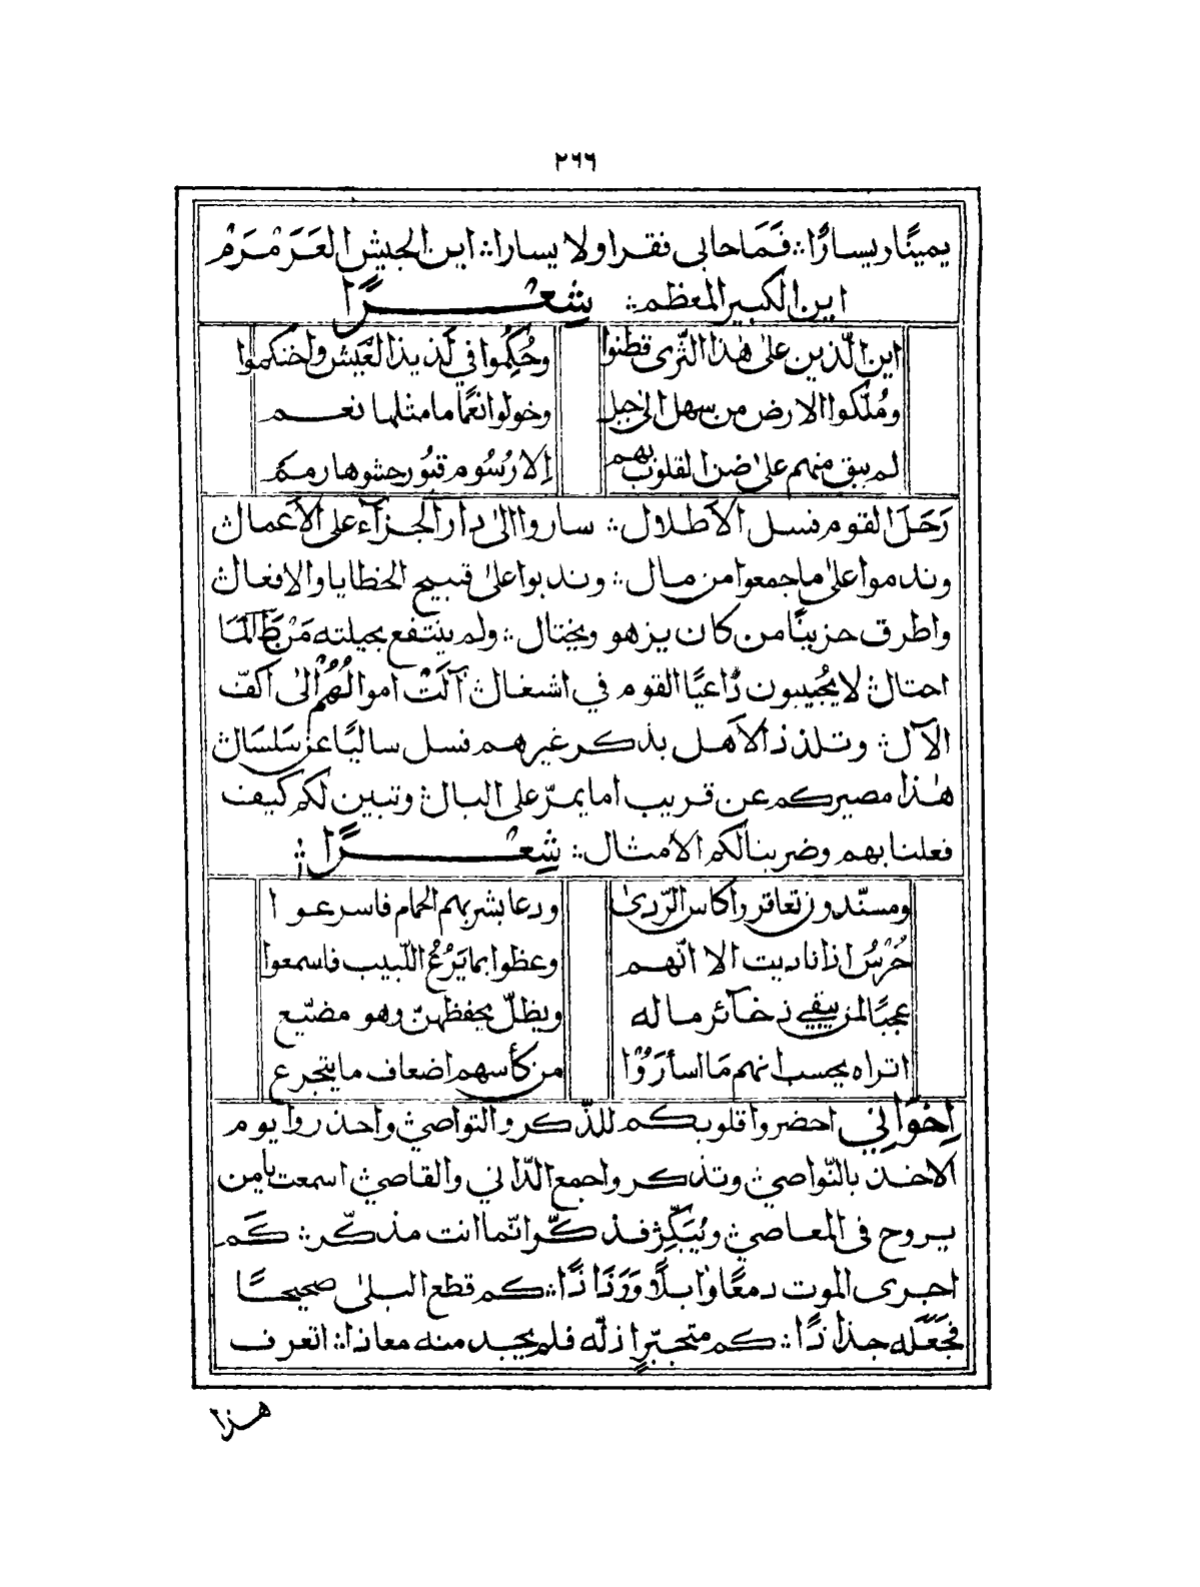 ٢٦٦
يمينًا ويسارًا ∴ فَمَا حابى فقرا ولا يسارا ∴ اين الجيش العَرَمْرَمْ
اين الكبير المعظم ∴ شِعْـــرًا
اين الّذين على هٰذا الثّرى قطنوا وحُكِّموا في لذيذ العَيش واحتكموا
ومُلّكوا الارض من سهل الى جبل وخولوا نعمًا ما مثلها نعـــم
لم يبق منهم على ضن القلوب بهم الا رُسُوم قبُور حشوها رمم
رَحَلَ القوم فسل الاَطلال ∴ ساروا الى دار الجزآء على الاَعمال ∴
وندموا على ما جمعوا من مال ∴ وندبوا على قبيح الخطايا والافعال ∴
واطرق حزينًا من كان يزهو ويختال ∴ ولم ينتفع بحيلته مَنْ طَالمَا
احتال ∴ لا يُجيبون دَاعيًا القوم في اشغال ∴ آلَتْ اموالُهُمْ الى اكفّ
الآل ∴ وتلذذ الاَهل بذكر غيرهم فسل ساليًا عن سَلسَال ∴
هٰذا مصيركم عن قريب اما يمرّ على البال ∴ وتبين لكم كيف
فعلنا بهم وضربنا لكم الامثال ∴ شِعْـــرًا ∴
ومسنّدون تعاقروا كاس الرّدىٰ ودعا بشربهم الحمام فاسرعوا
خُرْسُ اذا ناديت الا انّهم وعظوا بما يَزَعُ اللّبيب فاسمعوا
عجبًا لمن يبقي ذخآئر ماله ويظلّ يحفظهنّ وهو مضيّع
اتراه يحسب انهم مَا اسأرَوْا من كأسهم اضعاف ما يتجرع
اِخْوَانِي احضروا قلوبكم للذّكر والتواصي ∴ واحذروا يوم
الاخذ بالنّواصي ∴ وتذكروا جمع الدّاني والقاصي ∴ اسمعت يا من
يروح في المعاصي ∴ ويُبَكِّرْ ∴ فذكّر انّما انت مذكّر ∴ كَم
اجرى الموت دمعًا وَابلًا ورَذَاذًا ∴ كم قطع البلى صحيحًا
فجَعَله جذاذًا ∴ كم متجبّرٍ اذلّه فلم يجد منه معاذا ∴ اتعرف
هذا